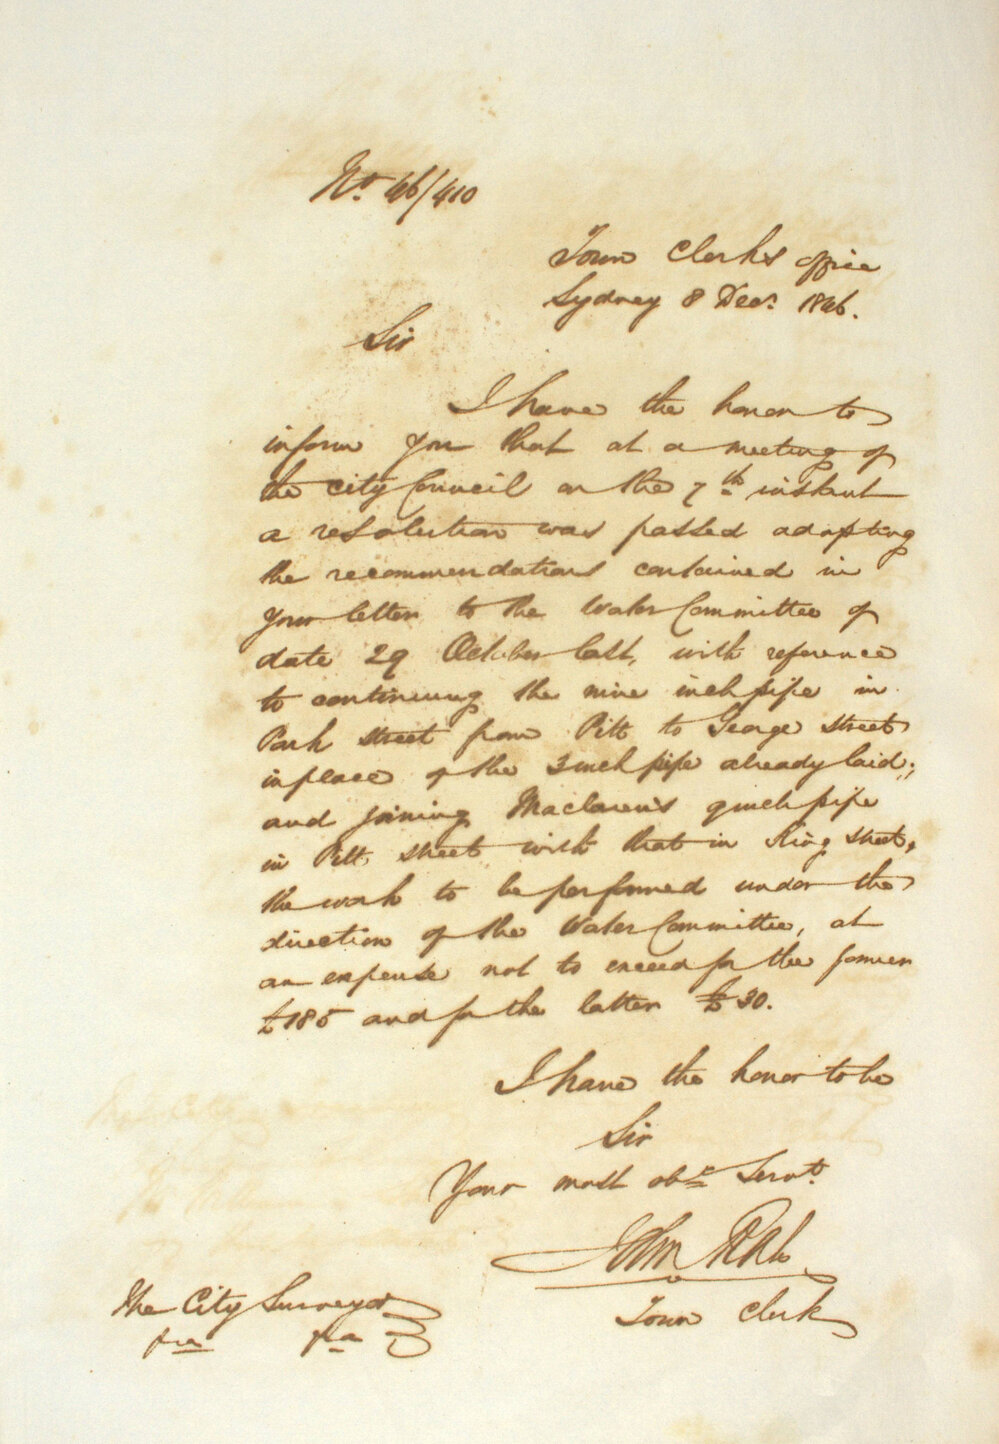 No. 46/410
Town Clerks office
Sydney 8 Decr. 1846.
Sir
I have the honor to
inform you that at a meeting of
the City Council on the 7th instant
a resolution was passed adopting
the recommendations contained in
your letter to the Water Committee of
date 29 October last, with reference
to continuing the nine inch pipe in
Park street from Pitt to George street
in place of the 3 inch pipe already laid;
and joining Maclaren's 9 inch pipe
in Pitt street with that in King street,
the work to be performed under the
direction of the Water Committee, at
an expense not to exceed for the former
£185 and for the latter £30.
I have the honor to be
Sir
Your most obt. Servt.
John Rae
Town Clerk
The City Surveyor